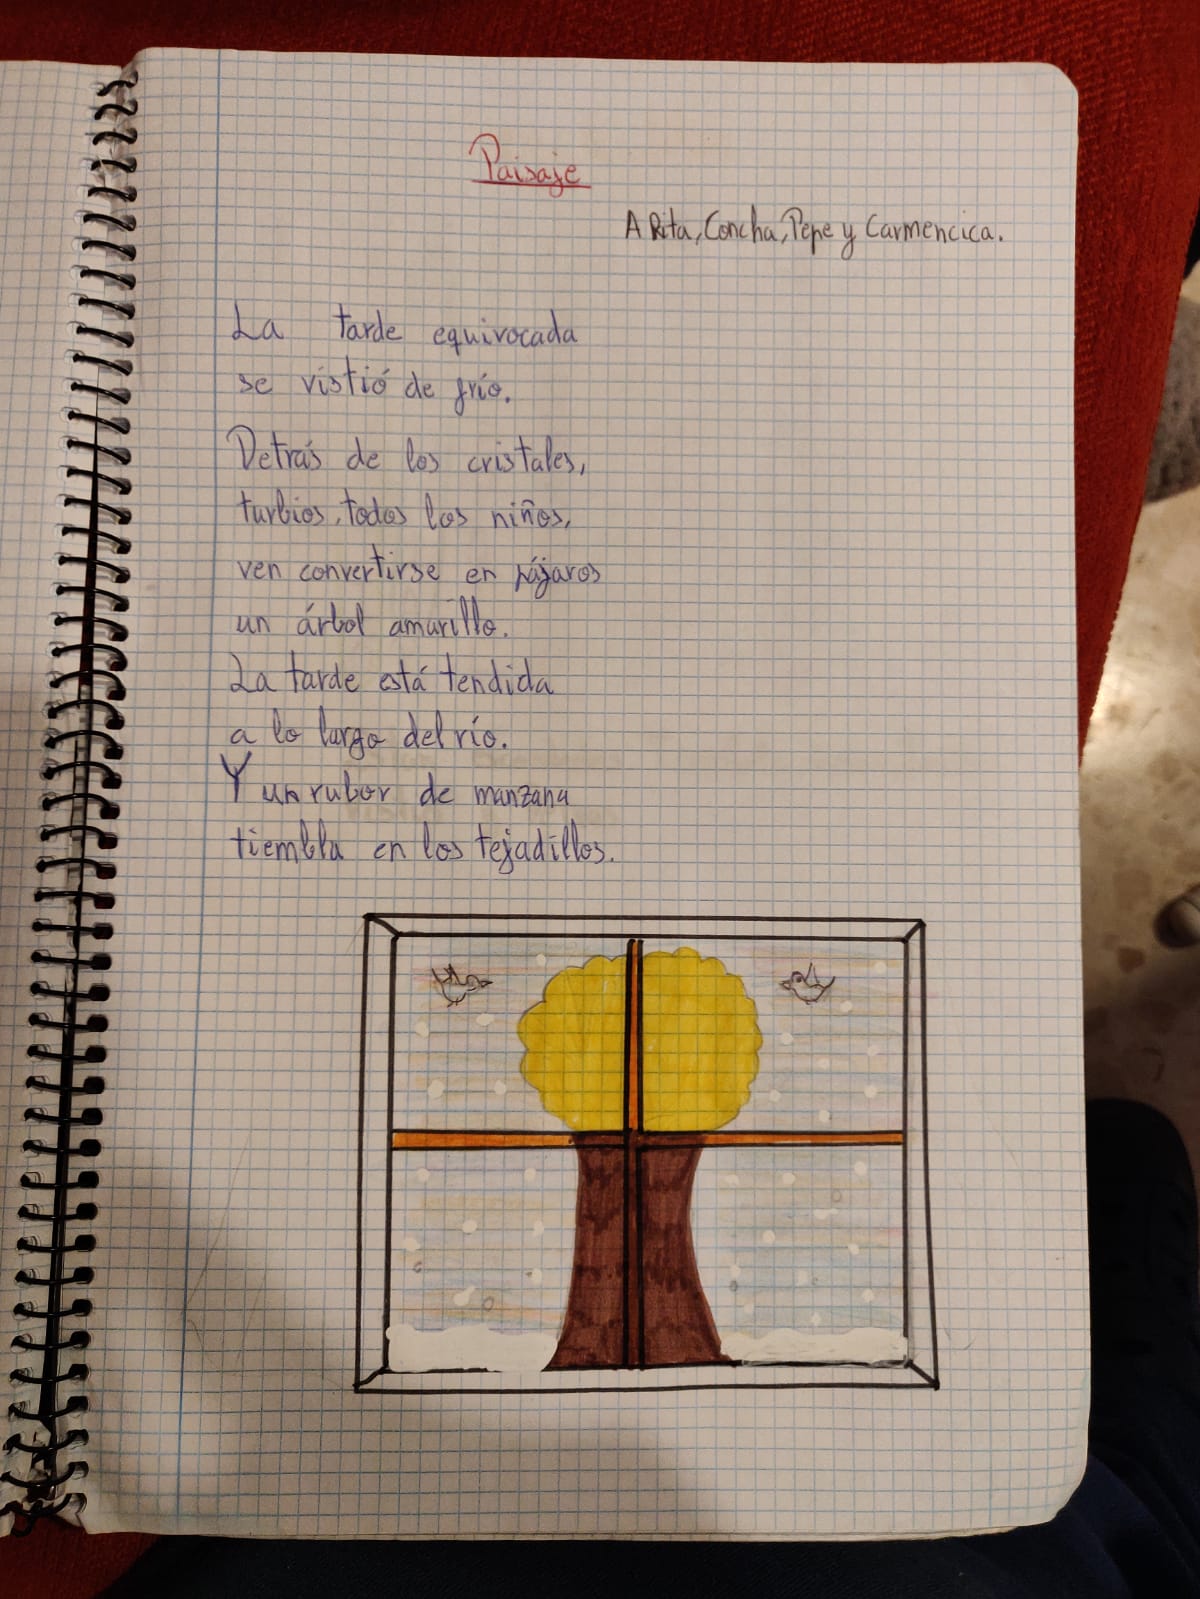 Paisaje
A Rita, Concha, Pepe y Carmencica.
La tarde equivocada
se vistió de frío.
Detrás de los cristales,
turbios, todos los niños,
ven convertirse en pájaros
un árbol amarillo.
La tarde está tendida
a lo largo del río.
Y un rubor de manzana
tiembla en los tejadillos.